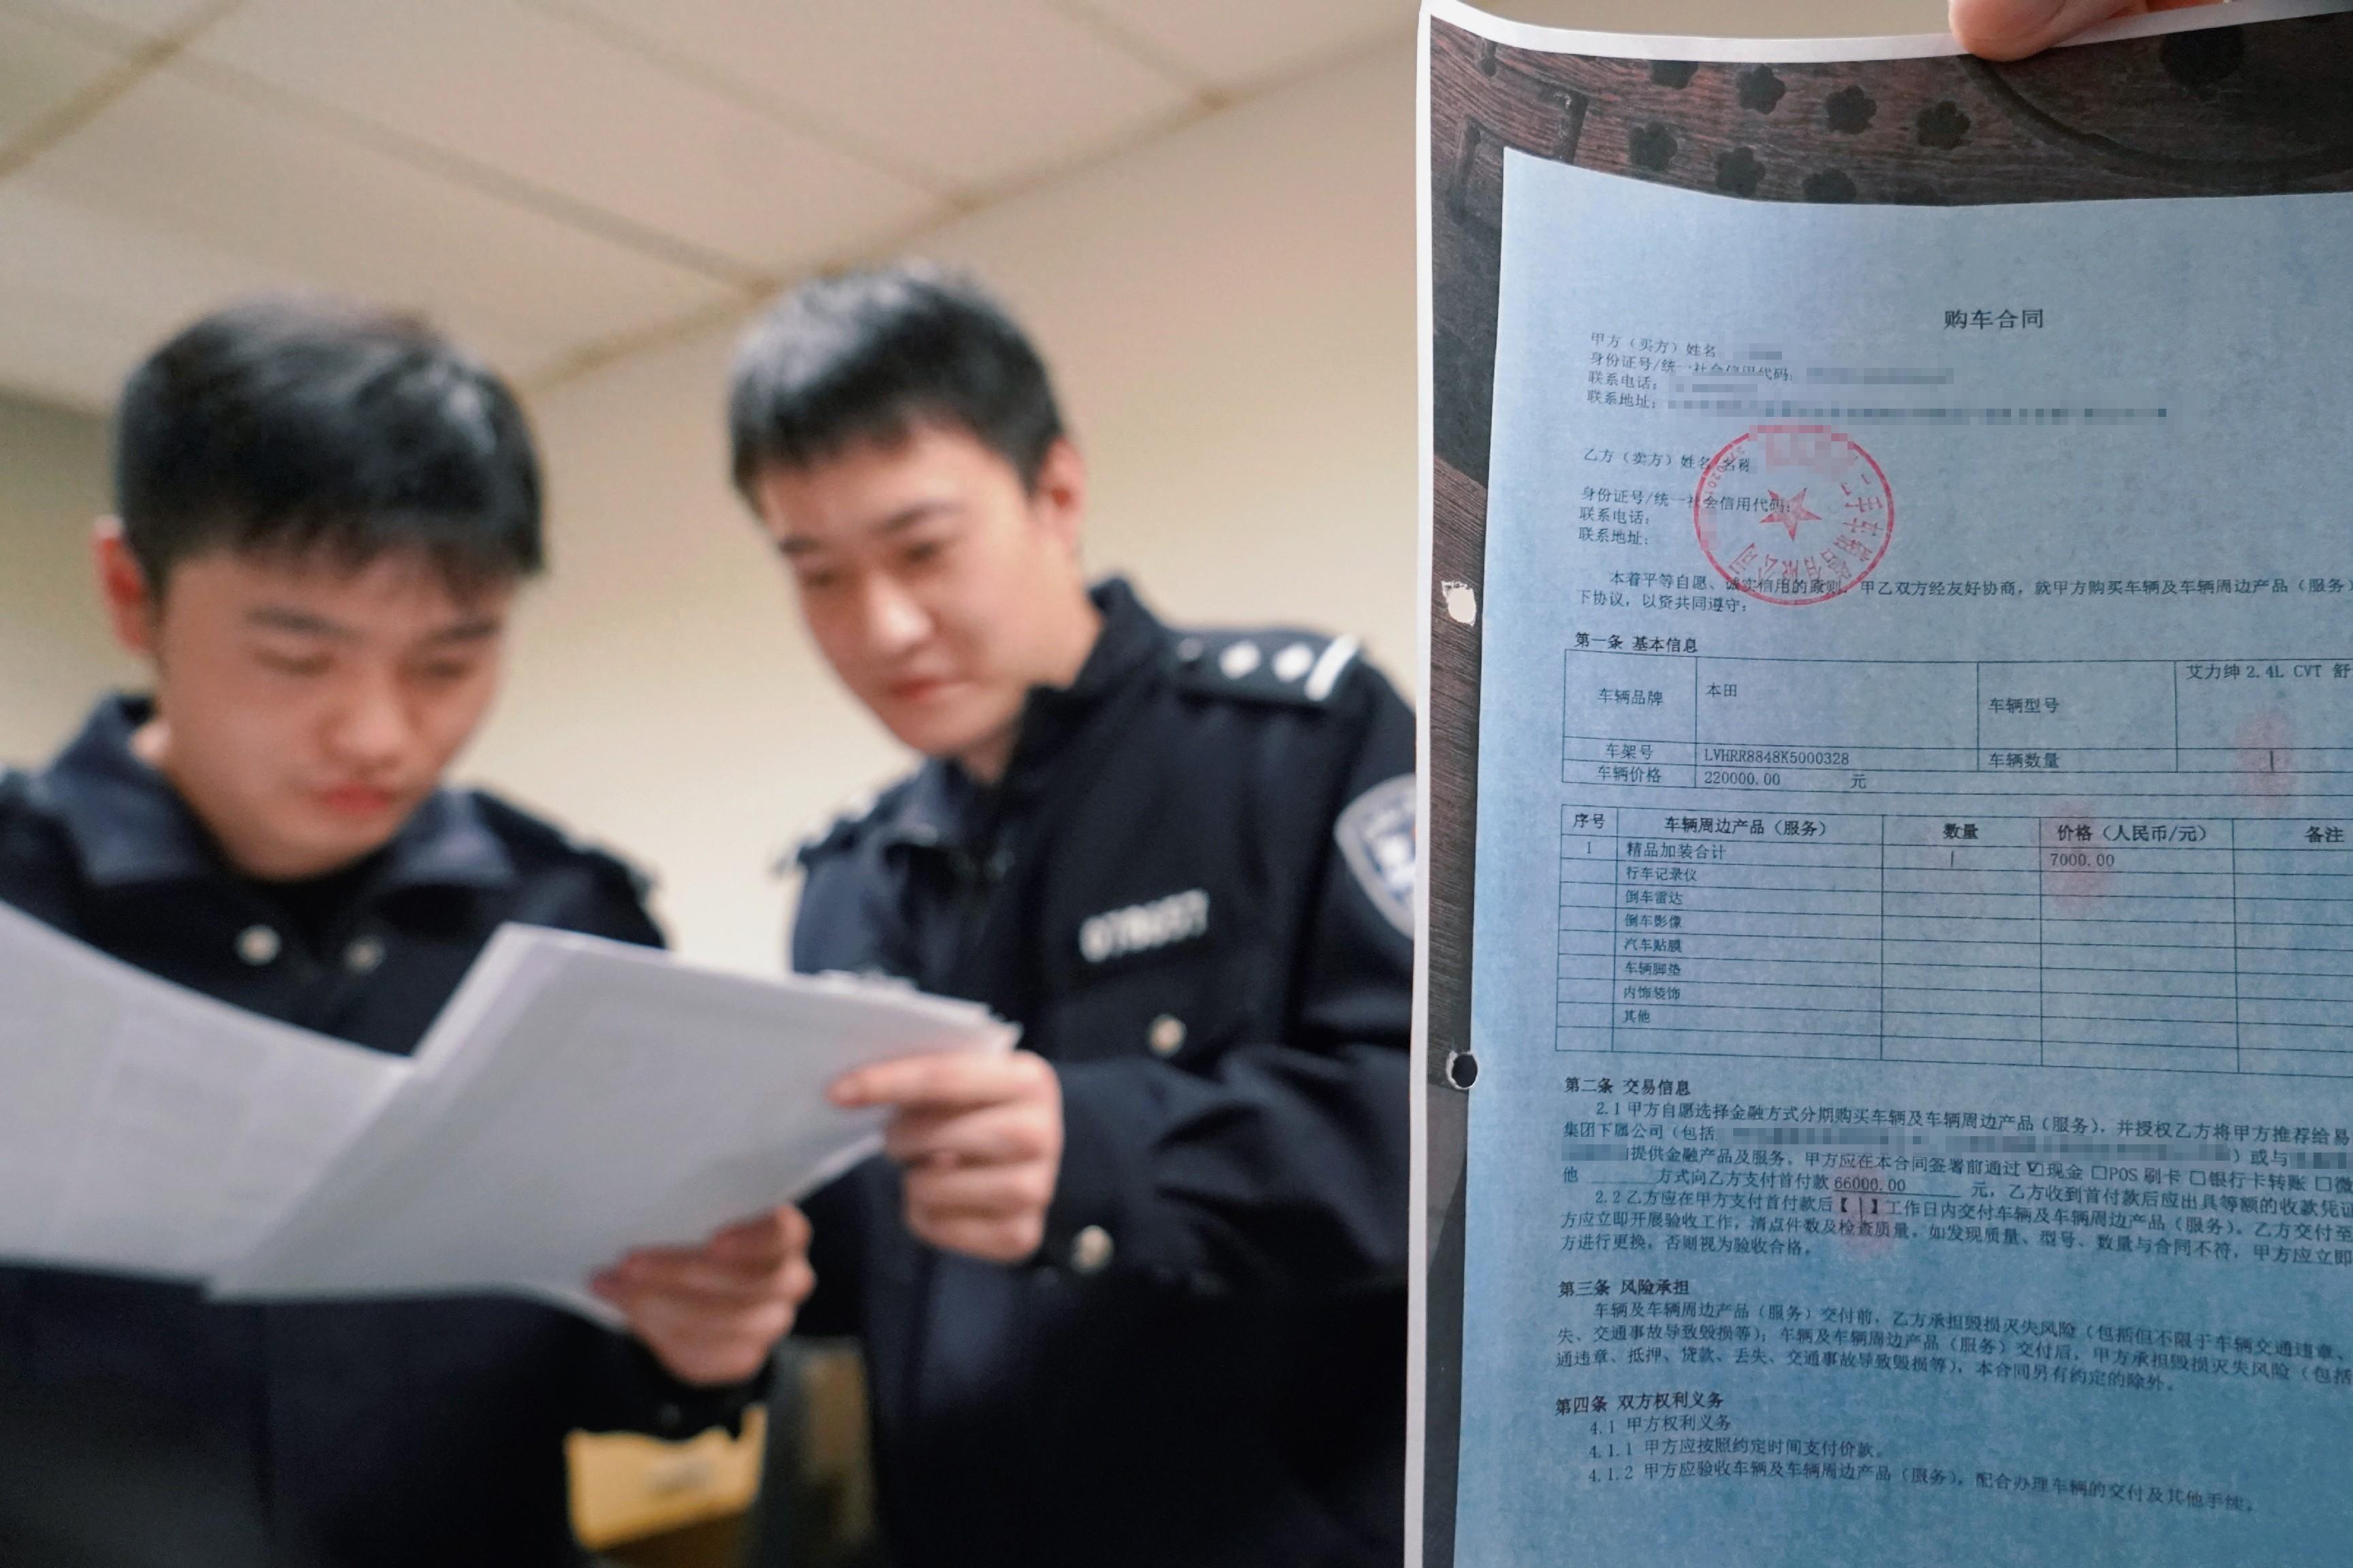 购车合同
甲方（买方）姓名
身份证号/统一社会信用代码:
联系电话:
联系地址:
乙方（卖方）姓名 名称
身份证号/统一社会信用代码:
联系电话:
联系地址:
二手车销售有限公司
本着平等自愿、诚实信用的原则，甲乙双方经友好协商，就甲方购买车辆及车辆周边产品（服务）
下协议，以资共同遵守:
第一条 基本信息
车辆品牌 本田 车辆型号 艾力绅 2.4L CVT 舒
车架号 LVHRR8848K5000328 车辆数量 1
车辆价格 220000.00 元
序号 车辆周边产品（服务） 数量 价格（人民币/元） 备注
1 精品加装合计 1 7000.00
行车记录仪
倒车雷达
倒车影像
汽车贴膜
车辆脚垫
内饰装饰
其他
第二条 交易信息
2.1 甲方自愿选择金融方式分期购买车辆及车辆周边产品（服务），并授权乙方将甲方推荐给易
集团下属公司（包括 ）或与
提供金融产品及服务。甲方应在本合同签署前通过 ☑现金 □POS 刷卡 □银行卡转账 □微
他 方式向乙方支付首付款 66000.00 元，乙方收到首付款后应出具等额的收款凭证
2.2 乙方应在甲方支付首付款后【 1 】工作日内交付车辆及车辆周边产品（服务）。乙方交付至
方应立即开展验收工作，清点件数及检查质量，如发现质量、型号、数量与合同不符，甲方应立即
方进行更换，否则视为验收合格。
第三条 风险承担
车辆及车辆周边产品（服务）交付前，乙方承担毁损灭失风险（包括但不限于车辆交通违章、
失、交通事故导致毁损等）；车辆及车辆周边产品（服务）交付后，甲方承担毁损灭失风险（包括
通违章、抵押、贷款、丢失、交通事故导致毁损等），本合同另有约定的除外。
第四条 双方权利义务
4.1 甲方权利义务
4.1.1 甲方应按照约定时间支付价款。
4.1.2 甲方应验收车辆及车辆周边产品（服务），配合办理车辆的交付及其他手续。